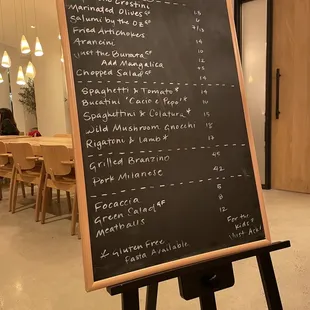 Crostini
Marinated Olives GF
Salumi by the Oz GF
Fried Artichokes
Arancini 14
not the Burrata GF
Add Mangalica
Chopped Salad GF 14
Spaghetti & Tomato * 14
Bucatini 'Cacio e Pepe'
Spaghettini & Colatura *
Wild Mushroom Gnocchi 18
Rigatoni & Lamb *
Grilled Branzino 45
Pork Milanese 42
Focaccia 8
Green Salad GF 8
Meatballs 12
* Gluten Free
Pasta Available
For the
kids?
Just Ask!